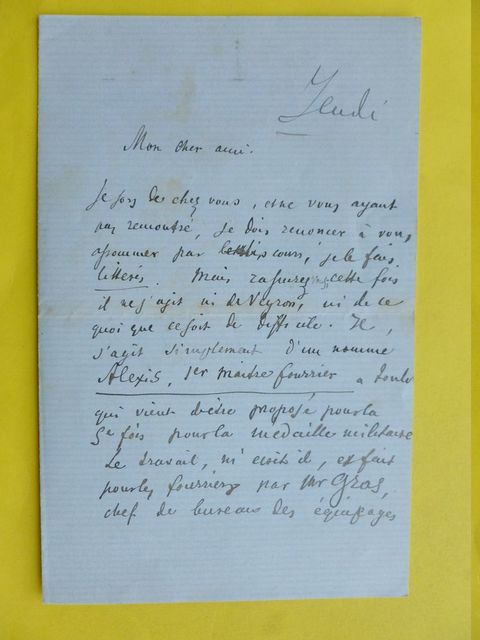 Jeudi
Mon cher ami.
Je sors de chez vous, et ne vous ayant
pas rencontré, je dois renoncer à vous
assommer par discours, je le fais
litteris. Mais rassurez vous cette fois
il ne s'agit ni de Veyron, ni de ce
quoi que ce soit de difficile. Il
s'agit simplement d'un nommé
Alexis, 1er maitre fourrier a Toulon
qui vient d'être proposé pour la
5e fois pour la medaille militaire
Le travail, m'écrit il, est fait
pour les fourriers par Mr Gras,
chef du bureau des équipages